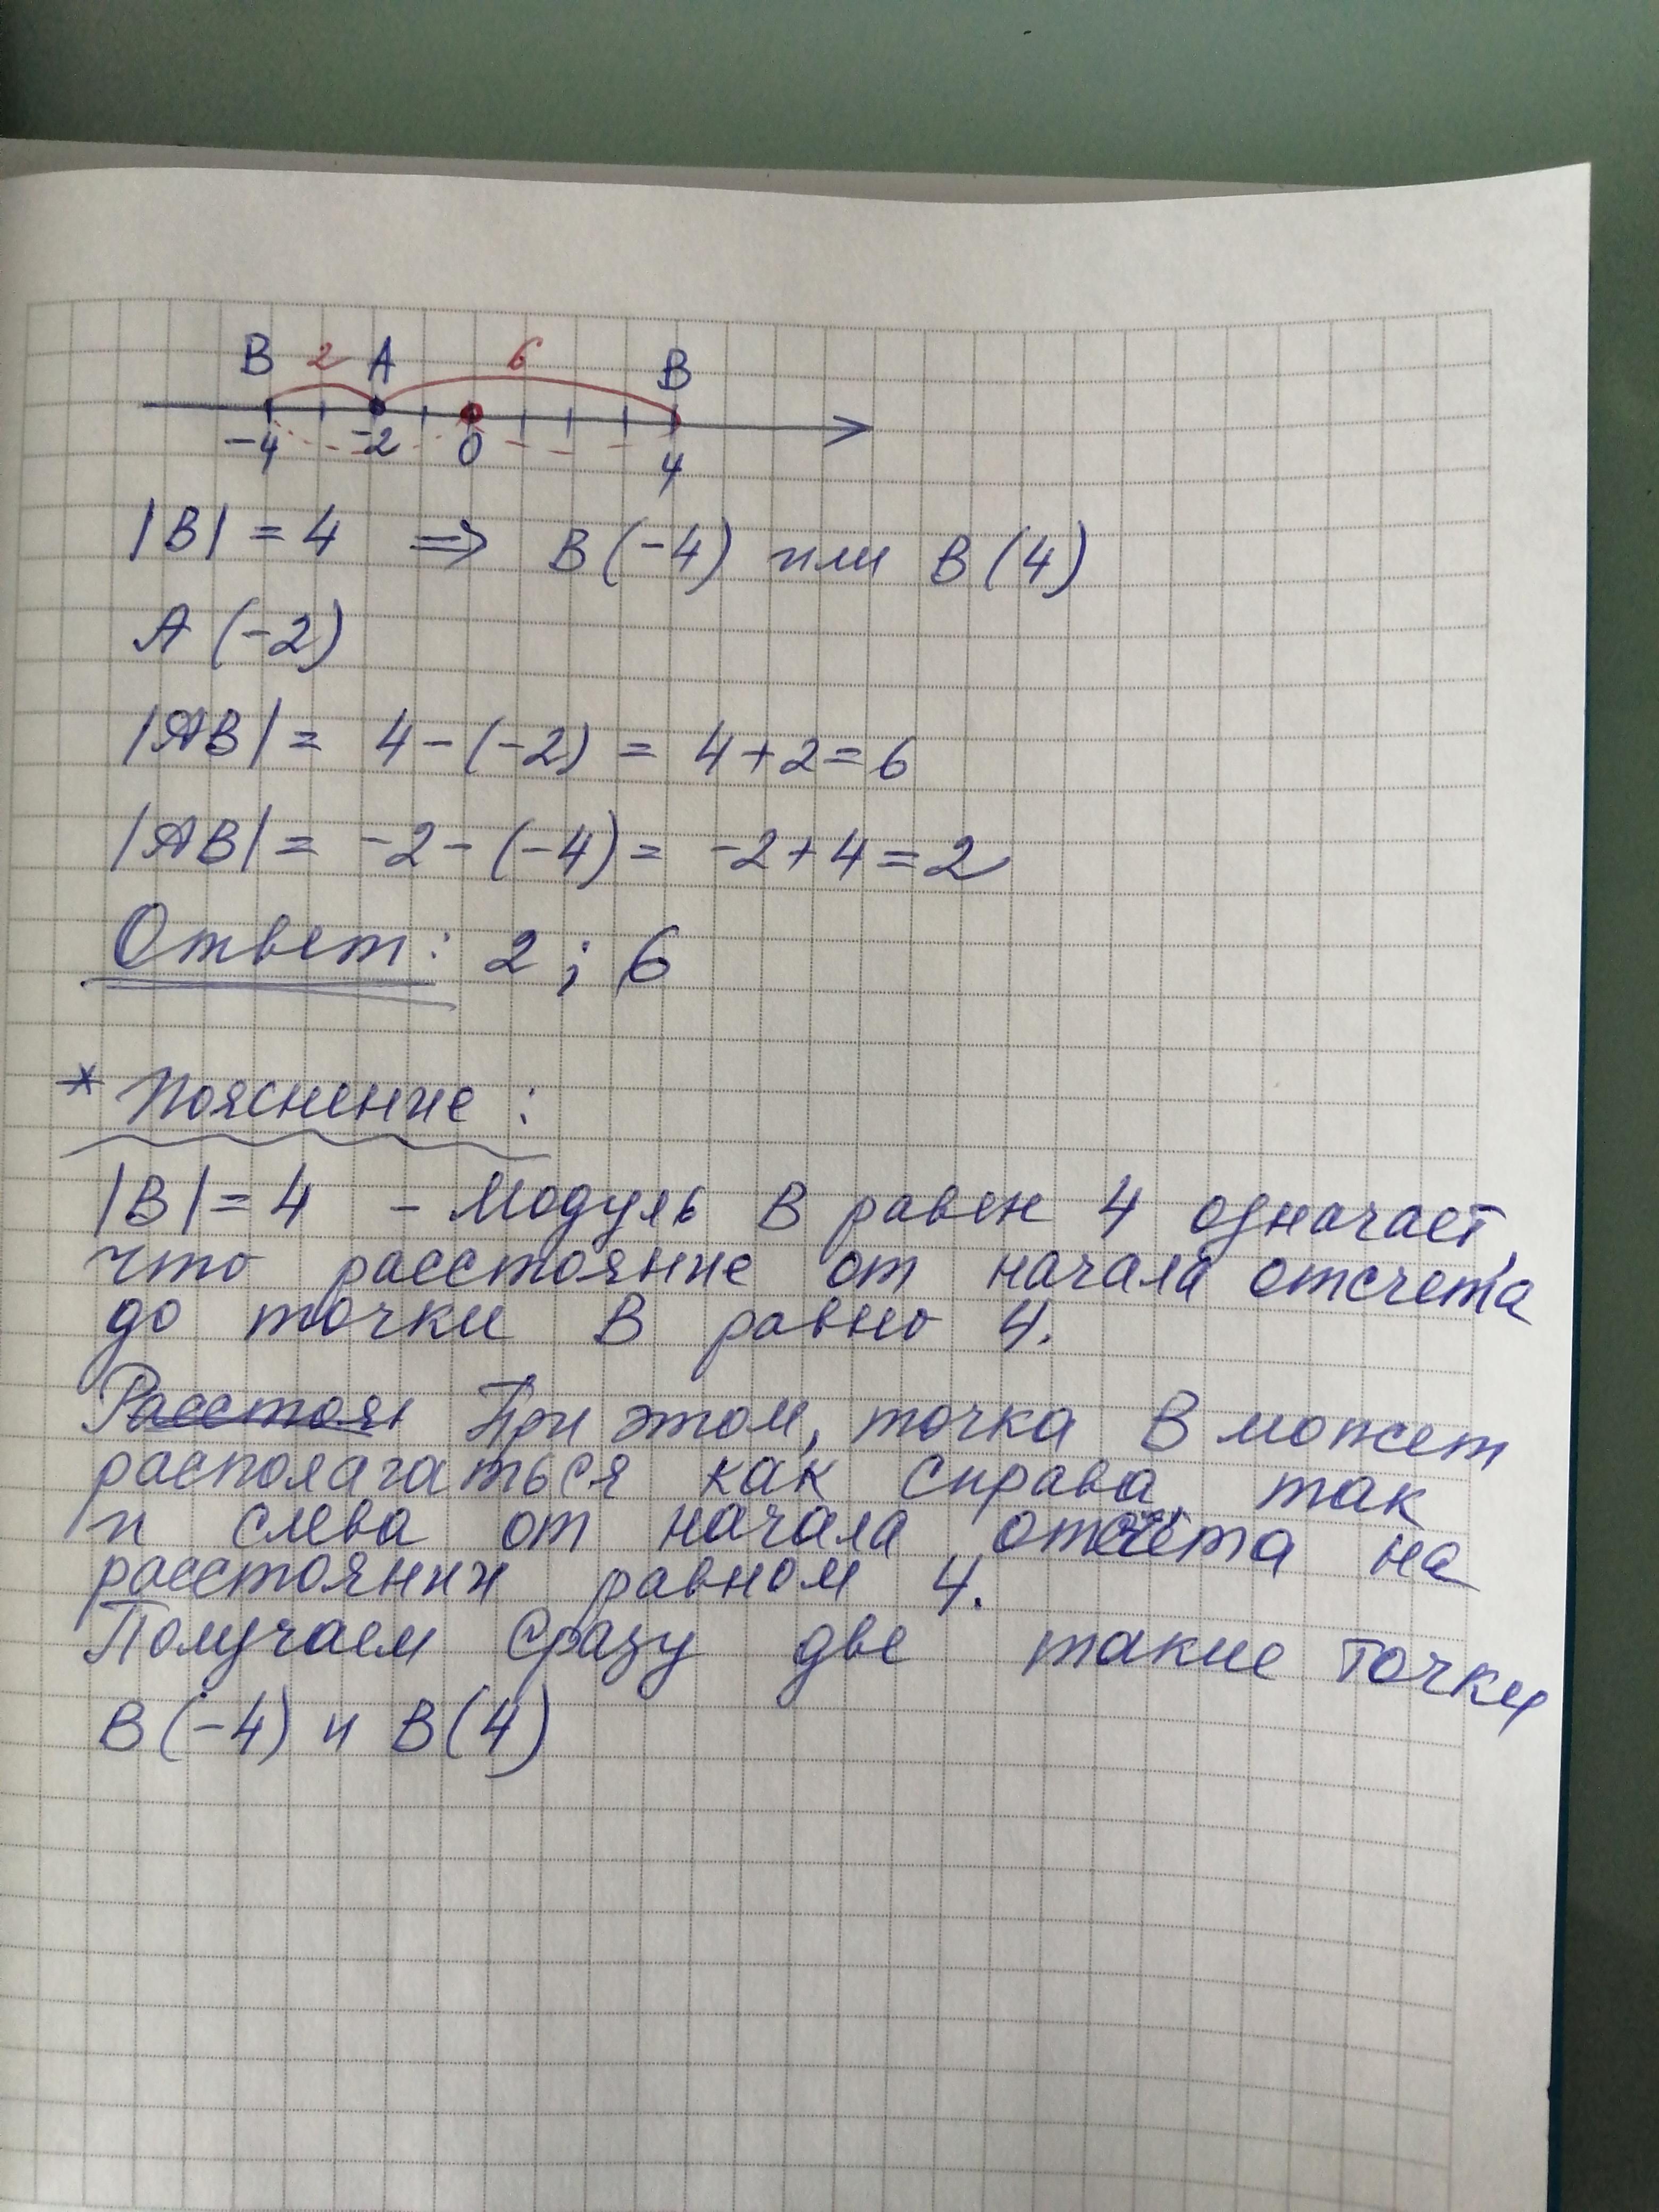 B 2 A 6 B
-4 -2 0 4
|B| = 4 => B(-4) или B(4)
A(-2)
|AB| = 4-(-2) = 4+2=6
|AB| = -2-(-4) = -2+4=2
Ответ: 2; 6
* Пояснение:
|B|=4 - Модуль B равен 4 означает,
что расстояние от начала отсчета
до точки B равно 4.
Расстоян При этом, точка B может
располагаться как справа, так
и слева от начала отсчёта на
расстоянии равном 4.
Получаем сразу две такие точки
B(-4) и B(4)